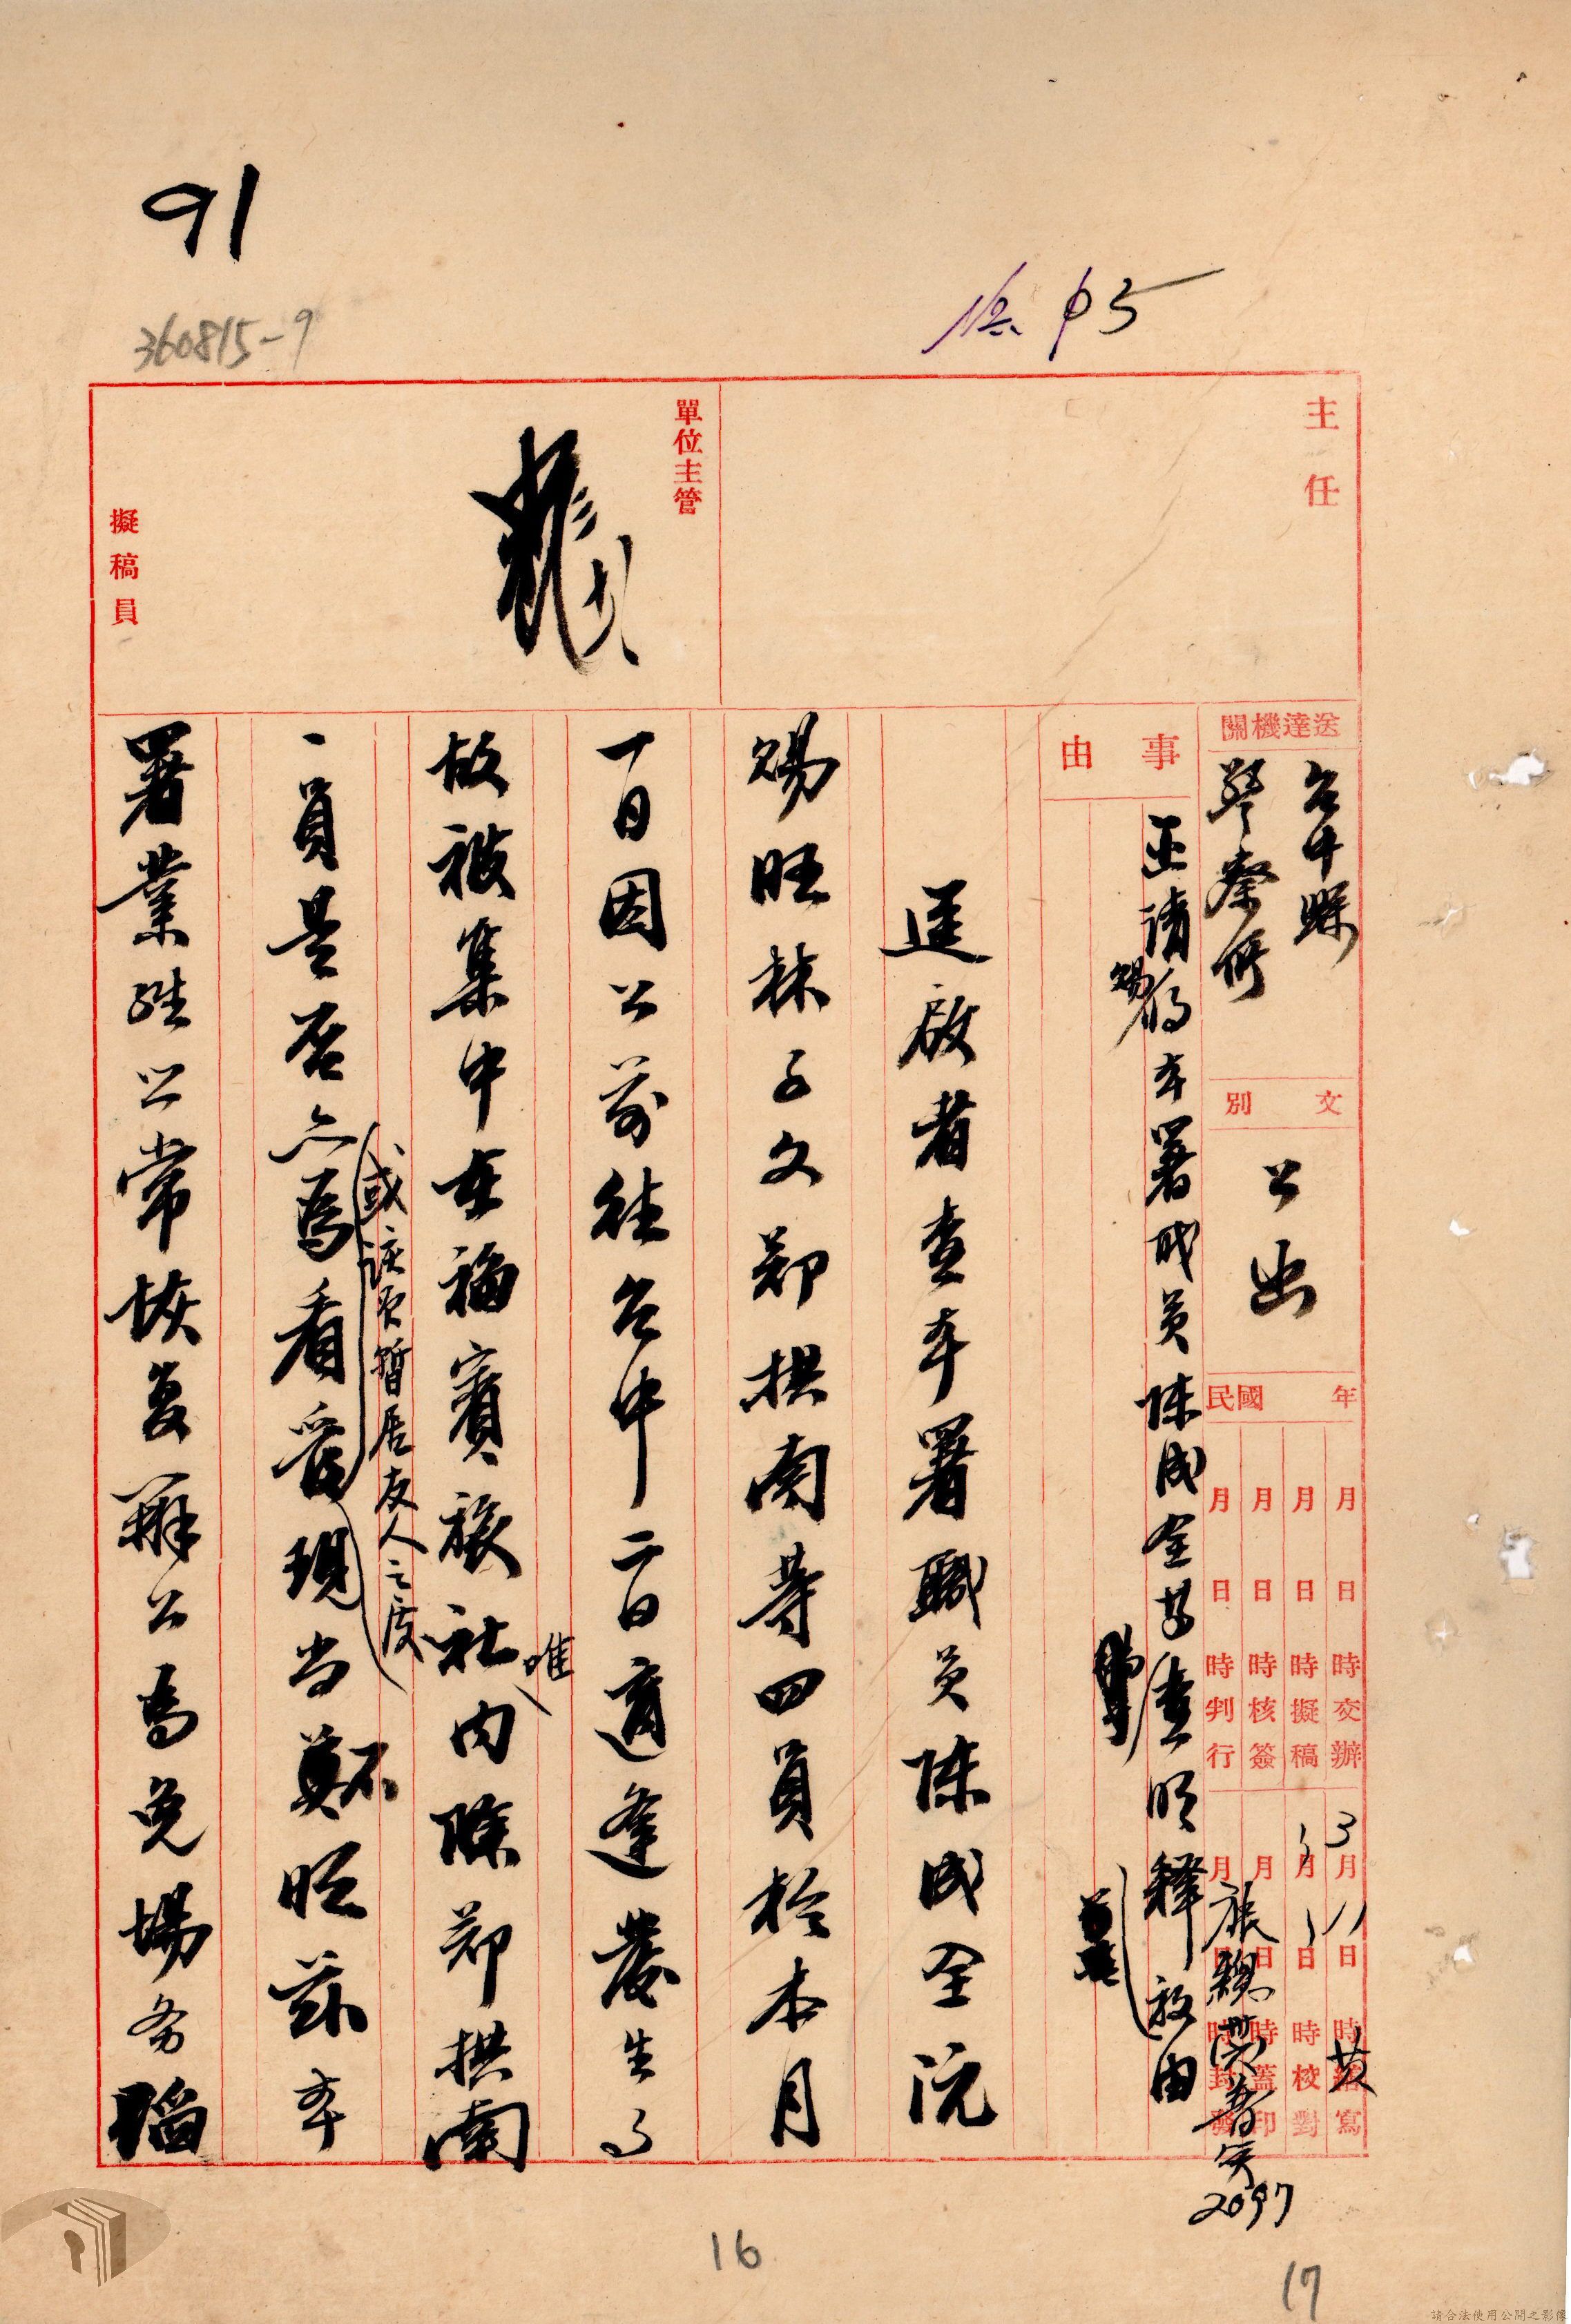 91
360815-9
主任
單位主管
擬稿員
送達機關
台中縣
警察所
文別
公出
民國 年
月 日 時交辦
月 日 時擬稿
月 日 時核簽
月 日 時判行
3月11日 時繕寫
月 日 時校對
月 日 時蓋印
月 日 時封發
2097
事由
函請賜傳本署成員陳成全等查明釋放由
逕啟者查本署職員陳成全沅
賜旺林子文鄭拱南等四員於本月
一日因公前往台中二日適逢發生事
故被集中在福賓旅社內除鄭拱南
唯
或該員暫居友人之處
一員是否亦為看管現尚不明茲本
署業經照常恢復辦公為免場務
16
17
請合法使用公開之影像